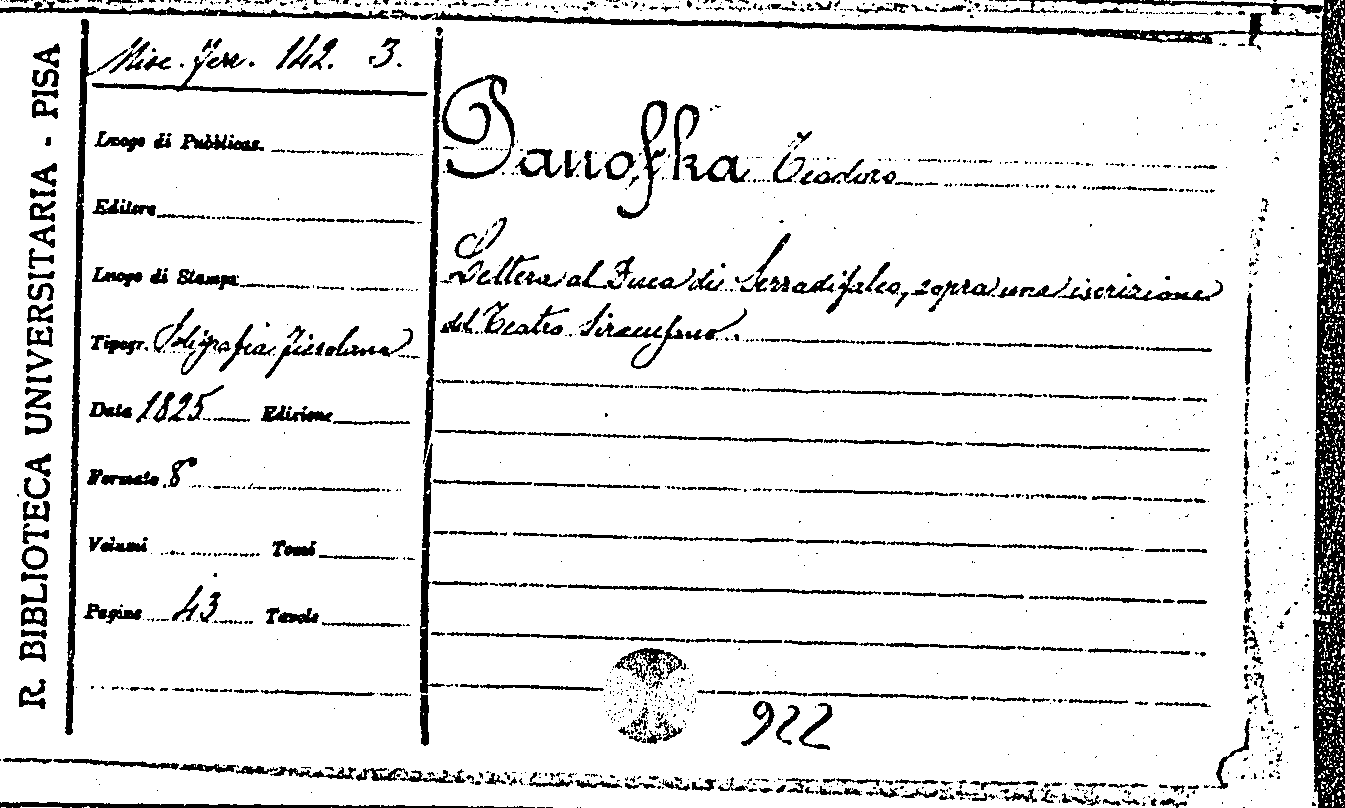 R. BIBLIOTECA UNIVERSITARIA - PISA
Misc. Ferr. 142. 3.
Luogo di Pubblicaz.
Editore
Luogo di Stampa
Tipogr. Poligrafia fiesolana
Data 1825 Edizione
Formato 8
Volumi Tomi
Pagine 43 Tavole
Panofka Teodoro
Lettera al Duca di Serradifalco, sopra una iscrizione
del Teatro Siracusano.
922